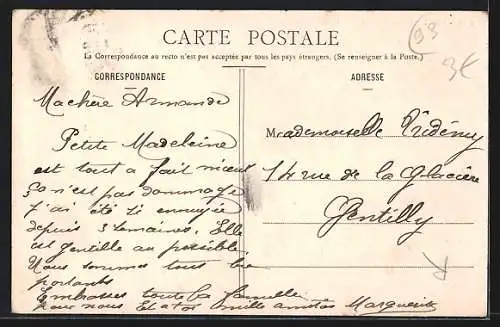 93
3€
CARTE POSTALE
La Correspondance au recto n'est pas acceptée par tous les pays étrangers. (Se renseigner à la Poste.)
CORRESPONDANCE
Machère Armande
Petite Madeleine
est tout a fait mieux
Ça n'est pas dommage
j'ai été si ennuyée
depuis 3 semaines. Elle
est gentille au possible
Nous sommes tous bien
portants
Embrasses toute la famille
pour nous Et a toi mille amitiés Marguerite
ADRESSE
Mademoiselle
14 rue de la Glacière
Gentilly